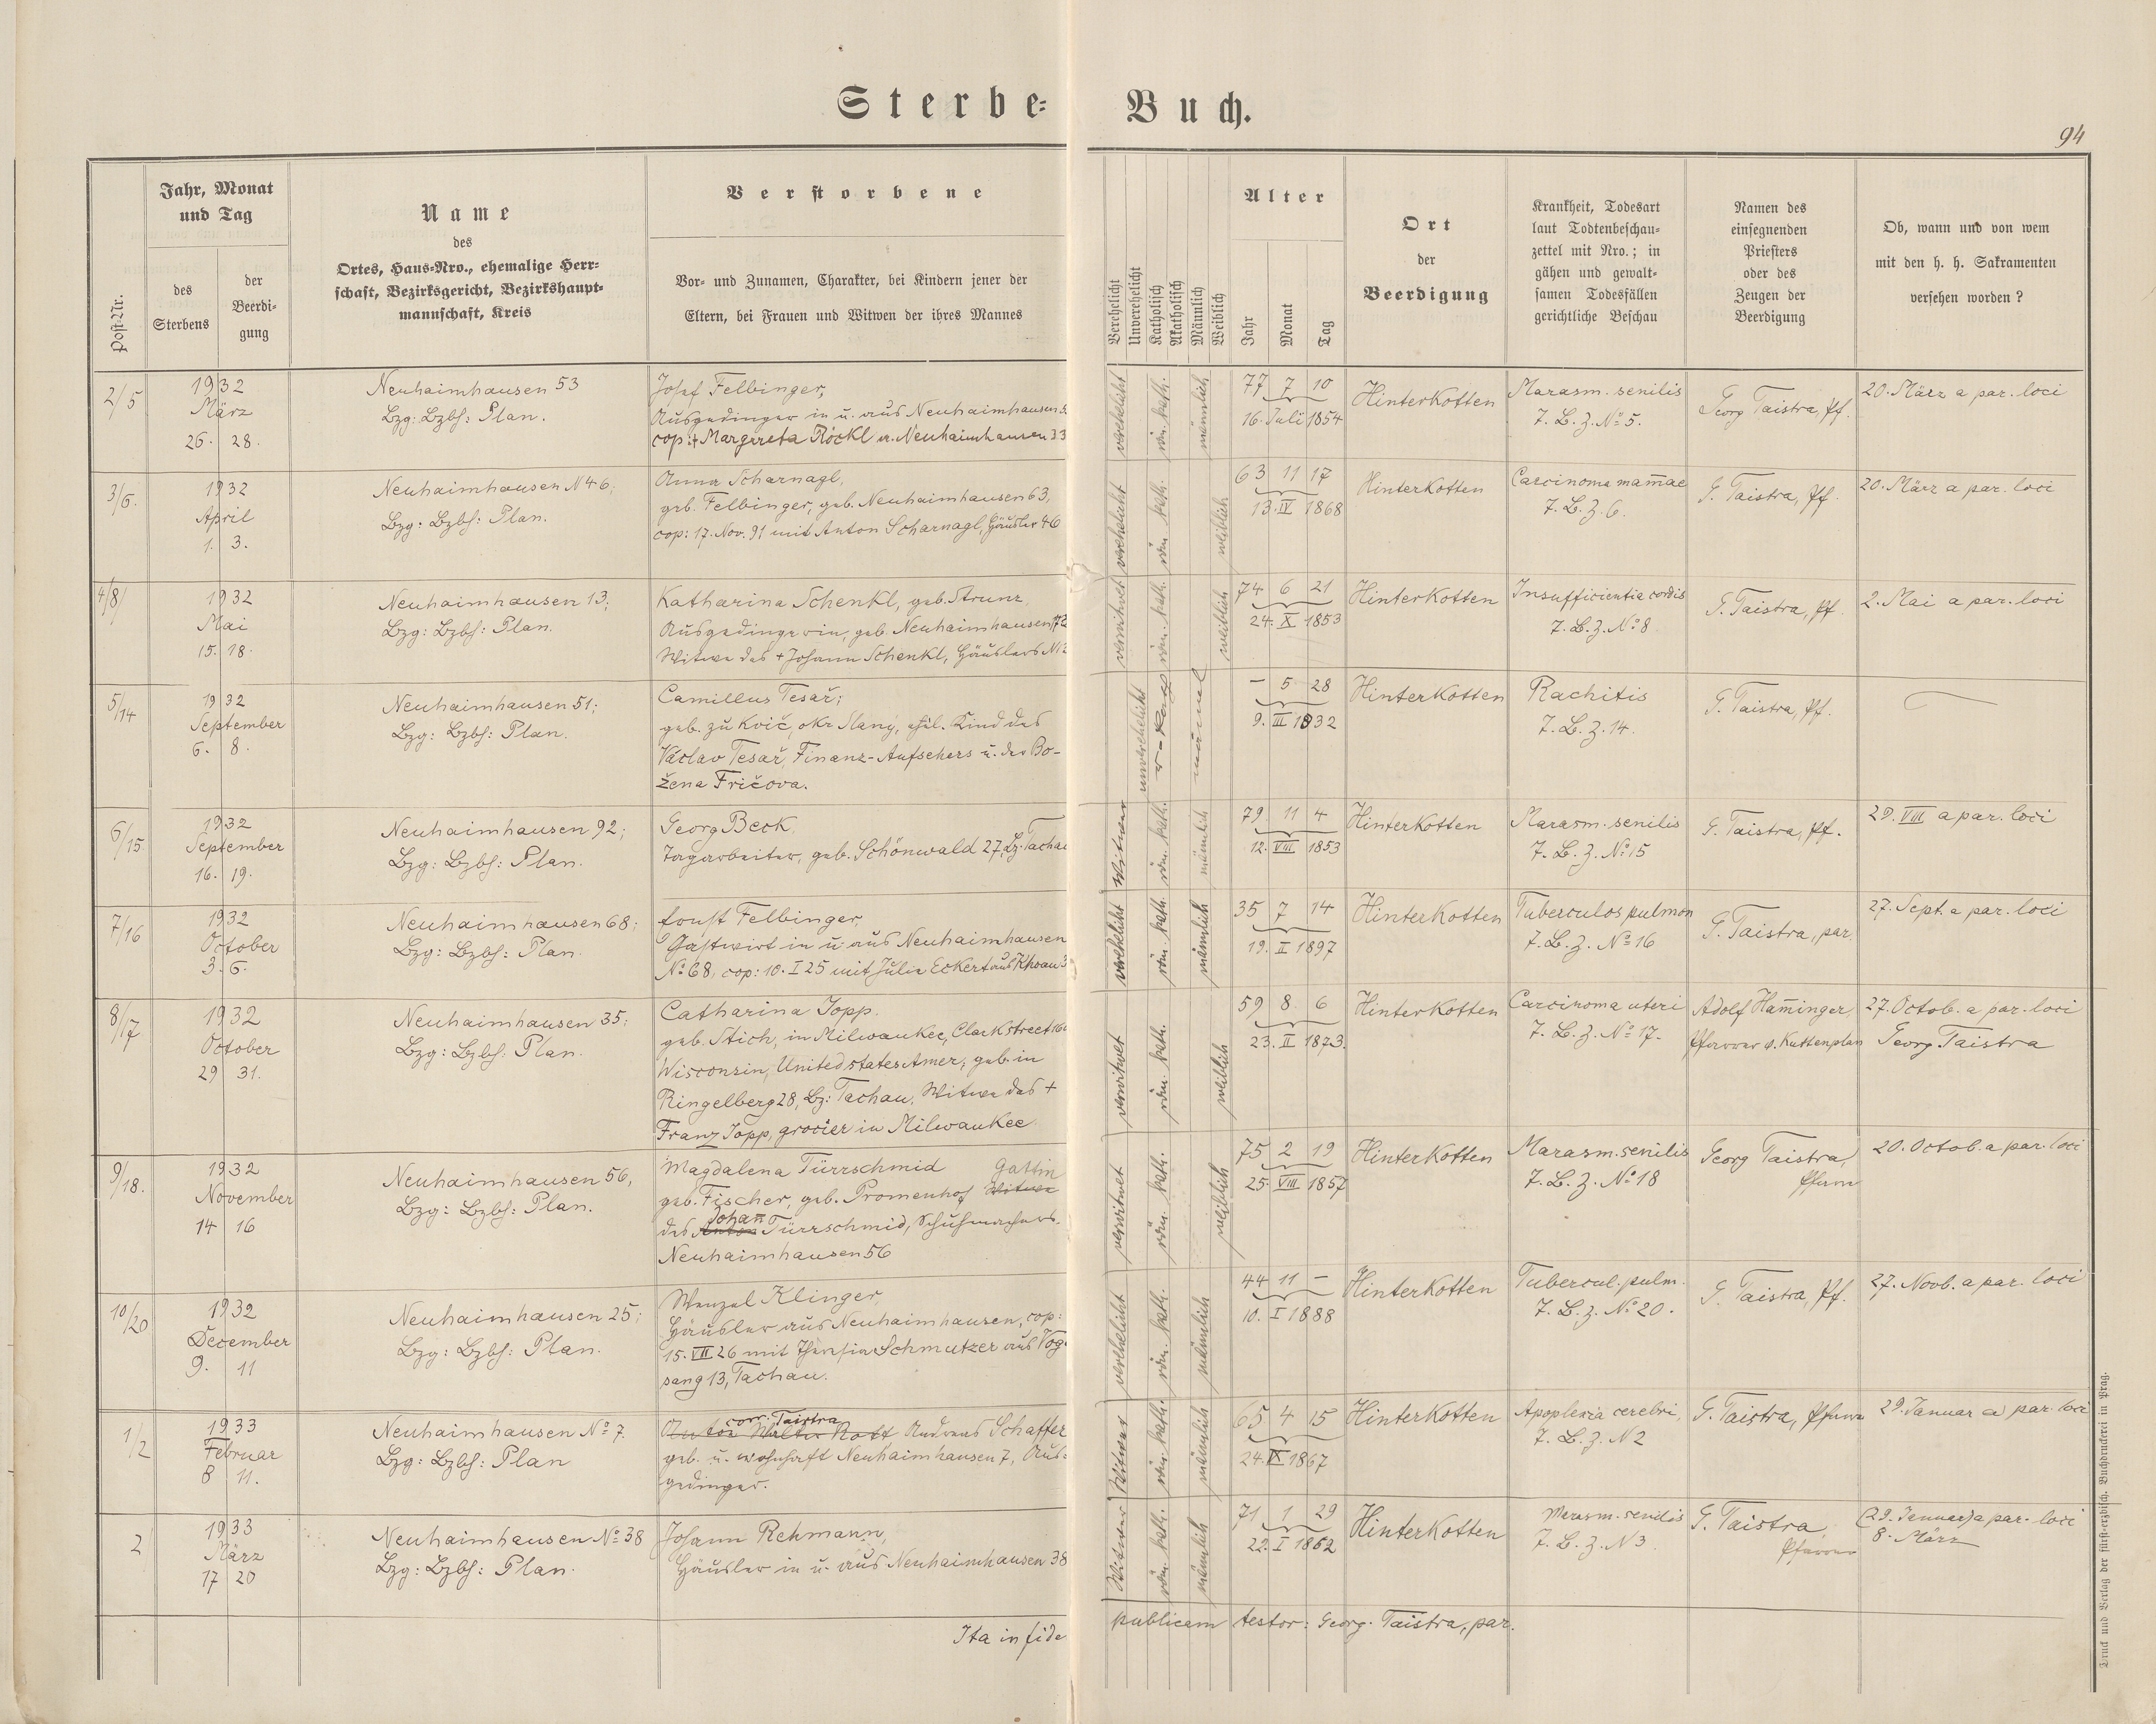 Sterbe-Buch.
94
Post-Nr.
Jahr, Monat
und Tag
des
Sterbens
der
Beerdi-
gung
Name
des
Ortes, Haus-Nro., ehemalige Herr-
schaft, Bezirksgericht, Bezirkshaupt-
mannschaft, Kreis
Verstorbene
Vor- und Zunamen, Charakter, bei Kindern jener der
Eltern, bei Frauen und Witwen der ihres Mannes
Verehelicht
Unverehelicht
Katholisch
Akatholisch
Männlich
Weiblich
Alter
Jahr
Monat
Tag
Ort
der
Beerdigung
Krankheit, Todesart
laut Todtenbeschau-
zettel mit Nro.; in
gähen und gewalt-
samen Todesfällen
gerichtliche Beschau
Namen des
einsegnenden
Priesters
oder des
Zeugen der
Beerdigung
Ob, wann und von wem
mit den h. h. Sakramenten
versehen worden?
2/5
1932
März
26. 28.
Neuhaimhausen 53
Bzg: Bzbh: Plan.
Josef Felbinger,
Ausgedinger in u. aus Neuhaimhausen
cop: + Margareta Röckl a. Neuhaimhausen 33
verehelicht
röm. kath.
männlich
77 7 10
16. Juli 1854
Hinterkotten
Marasm. senilis
T. B. z. No 5.
Georg Taistra, Pf.
20. März a par. loci
3/6.
1932
April
1. 3.
Neuhaimhausen N 46;
Bzg: Bzbh: Plan.
Anna Scharnagl,
geb. Felbinger, geb. Neuhaimhausen 63,
cop: 17. Nov. 91 mit Anton Scharnagl, Häusler 46
verehelicht
röm. kath.
weiblich
63 11 17
13. IV 1868
Hinterkotten
Carcinoma mam̅ae
T. B. z. 6.
G. Taistra, Pf.
20. März a par. loci
4/8
1932
Mai
15. 18.
Neuhaimhausen 13;
Bzg: Bzbh: Plan.
Katharina Schenkl, geb. Strunz,
Ausgedingerin, geb. Neuhaimhausen
Witwe des + Johann Schenkl, Häuslers
verwitwet
röm. kath.
weiblich
74 6 21
24. X 1853
Hinterkotten
Insufficientia cordis
T. B. z. No 8
G. Taistra, Pf.
2. Mai a par. loci
5/14
1932
September
6. 8.
Neuhaimhausen 51;
Bzg: Bzbh: Plan.
Camillus Tesař;
geb. zu Kvíč, okr. Slaný, ehel. Kind des
Václav Tesař, Finanz-Aufsehers u. der Bo-
žena Fričova.
unverehelicht
männl
– 5 28
9. III 1932
Hinterkotten
Rachitis
T. B. z. 14.
G. Taistra, Pf.
6/15
1932
September
16. 19.
Neuhaimhausen 92;
Bzg: Bzbh: Plan.
Georg Beck,
Tagarbeiter, geb. Schönwald 27, Bz. Tachau
Witwer
röm. kath.
männlich
79 11 4
12. VIII 1853
Hinterkotten
Marasm. senilis
T. B. z. No 15
G. Taistra, Pf.
29. VIII a par. loci
7/16
1932
October
3. 6.
Neuhaimhausen 68;
Bzg: Bzbh: Plan.
Ernst Felbinger,
Gastwirt in u. aus Neuhaimhausen
No 68, cop: 10. I 25 mit Julie Eckert aus Khoau
verehelicht
röm. kath.
männlich
35 7 14
19. II 1897
Hinterkotten
Tuberculos pulmon
T. B. z. No 16
G. Taistra, par.
27. Sept. a par. loci
8/17
1932
October
29 31.
Neuhaimhausen 35;
Bzg: Bzbh: Plan.
Catharina Jopp.
geb. Stich, in Milwaukee, Clark street
Wisconsin, United states Amer; geb. in
Ringelberg 28, Bz: Tachau, Witwe des +
Franz Jopp, grocier in Milwaukee
verwitwet
röm. kath.
weiblich
59 8 6
23. II 1873.
Hinterkotten
Carcinoma uteri
T. B. z. No 17.
Adolf Ham̅inger,
Pfarrer v. Kuttenplan
27. Octob. a par. loci
Georg Taistra
9/18.
1932
November
14 16
Neuhaimhausen 56,
Bzg: Bzbh: Plan.
Magdalena Türrschmid Gattin
geb. Fischer, geb. Promenhof Witwe
Johan̅
des Anton Türrschmid, Schuhmachers.
Neuhaimhausen 56
verwitwet
röm. kath.
weiblich
75 2 19
25. VIII 1857
Hinterkotten
Marasm. senilis
T. B. z. No 18
Georg Taistra,
Pfarrer
20. Octob. a par. loci
10/20
1932
December
9. 11
Neuhaimhausen 25;
Bzg: Bzbh: Plan.
Wenzel Klinger,
Häusler aus Neuhaimhausen, cop:
15. VII 26 mit Theresia Schmutzer aus Vog
sang 13, Tachau.
verehelicht
röm. kath.
männlich
44 11 –
10. I 1888
Hinterkotten
Tubercul. pulm.
T. B. z. No 20.
G. Taistra, Pf.
27. Novb. a par. loci
1/2
1933
Februar
8 11.
Neuhaimhausen No 7.
Bzg: Bzbh: Plan
corr. Taistra
Anton Andreas Schaffer
geb. u. wohnhaft Neuhaimhausen 7, Aus-
gedinger.
Witwer
röm. kath.
männlich
65 4 15
24. IX 1867
Hinterkotten
Apoplexia cerebri,
T. B. z. N 2
G. Taistra, Pfarrer
29. Januar a par. loci
2
1933
März
17 20
Neuhaimhausen No 38
Bzg: Bzbh: Plan.
Johann Rehmann,
Häusler in u. aus Neuhaimhausen 38
Witwer
röm. kath.
männlich
71 1 29
22. I 1862
Hinterkotten
Marasm. senilis
T. B. z. N 3
G. Taistra,
Pfarrer
(29. Januar) a par. loci
8. März
Ita in fide publicam testor: Georg. Taistra, par.
Druck und Verlag der fürst-erzbisch. Buchdruckerei in Prag.